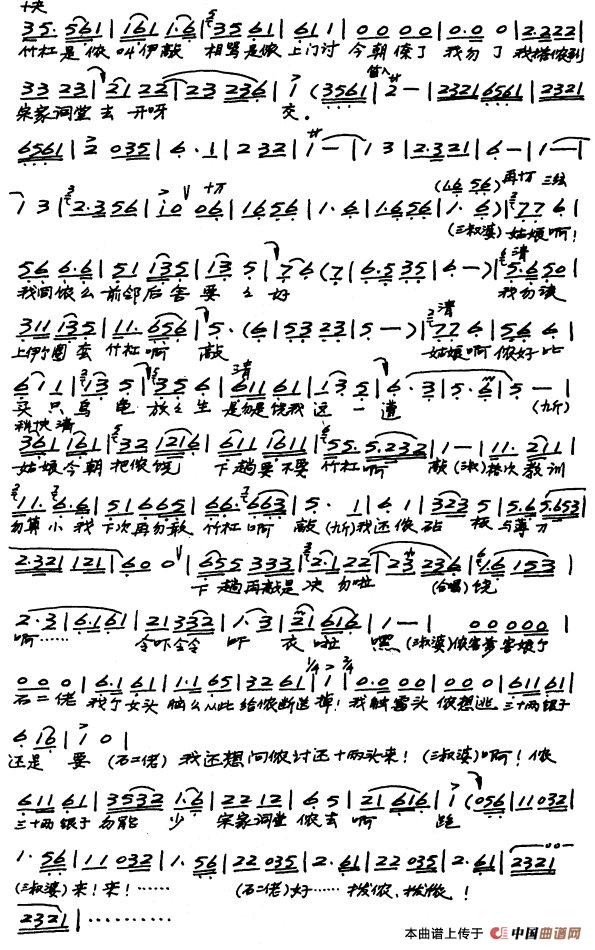 35. 561 | 161 1·6 | 35 61 | 61 1 | 0 0 0 0 | 0.0 0 | 2.222 |
竹杠是侬叫伊敲 相骂是侬上门讨 今朝 了 我勿了 我搭侬到
33 23 | 21 22 | 23 236 | 1 (3561 | 2 — | 2321 6561 | 2321
宋家洞堂去 开呀 交。
6561 | 2 035 | 6·1 | 2 32 | 1 — | 1 3 | 2.321 | 6 — | 1 — |
(16 56) 再十万 三弦
1 3 | 2.356 | 10 06 | 1656 | 1·6 | 1.656 | 1·6) | 77 6 |
(三叔婆) 姑娘啊!
56 6.6 | 51 135 | 13 5 | 76 (7 | 6.5 35 | 6 — ) | 5.650 |
我问侬么 前邻后舍要么好 我勿该
311 135 | 11. 656 | 5· (6 | 53 23 | 5 — ) | 77 6 | 56 6 |
上伊圈套 竹杠啊 敲 姑娘啊 侬好比
6 1 1 | 13 5 | 35 6 | 611 61 | 1 35 | 6·3 | 5·6 | 5 — |
买只乌龟 放么生 是勿是饶我这一遭 (九斤)
361 161 | 32 1216 | 611 1611 | 55. 5.232 | 1 — | 11. 211 |
姑娘今朝把侬饶 下趟要不要 竹杠啊 敲 (淑) 搭次教训
11. 6.6 | 51 665 | 66. 663 | 5· 1 | 6 1 | 323 5 | 5.65 5.653 |
勿算小 我下次再勿敢 竹杠啊 敲 (九斤) 我还侬砧板与薄刀
2.321 121 | 6 0 0 | 655 333 | 2.122 | 23 236 | 16 153 |
下趟再敲是决勿啦 (合唱) 饶
2·3 | 6.161 | 21 332 | 1·3 | 21 616 | 1 — | 0 0 0 0 0 |
啊…… 令吓令令 吓 衣啦 嘿 (三叔婆) 侬害爹害娘个
0 0 0 | 6.1 61 | 1.1 65 | 32 61 | 1 | 0.0 00 | 00 0 | 611 61 |
石二佬 我个女头 么从此给侬断送掉! 我触霉头 侬想逃 三十两银子
6 16 | 1 0 |
还是 要 (石二佬) 我还想问侬讨还十两头来! (三叔婆) 啊! 侬
611 61 | 3532 1·6 | 22 12 | 6 5 | 21 616 | 1 (056 | 11 032 |
三十两银子勿能 少 宋家洞堂侬去啊 跑
1· 56 | 11 032 | 1. 56 | 22 035 | 2.61 | 22 035 | 2.61 | 2321
(三叔婆) 来! 来! …… (石二佬) 好…… 拨侬, 拨侬!
2321 | …………
本曲谱上传于 中国曲谱网